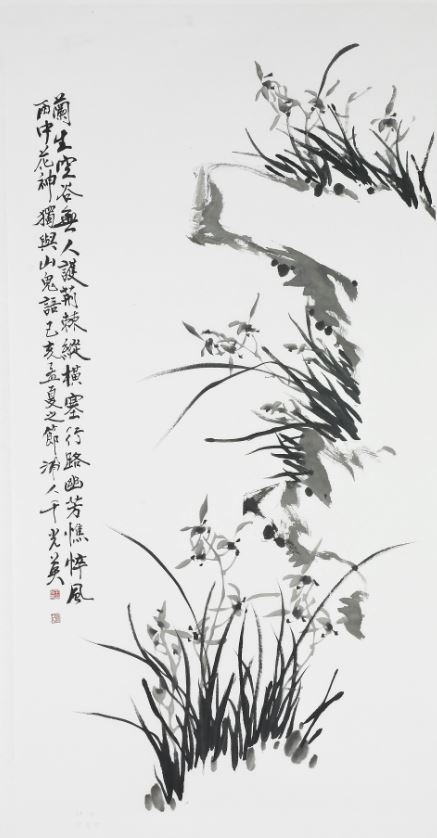 蘭生空谷無人護荊棘縱橫塞行路幽芳憔悴風
雨中花神獨與山鬼語己亥孟夏之節浦人千光英